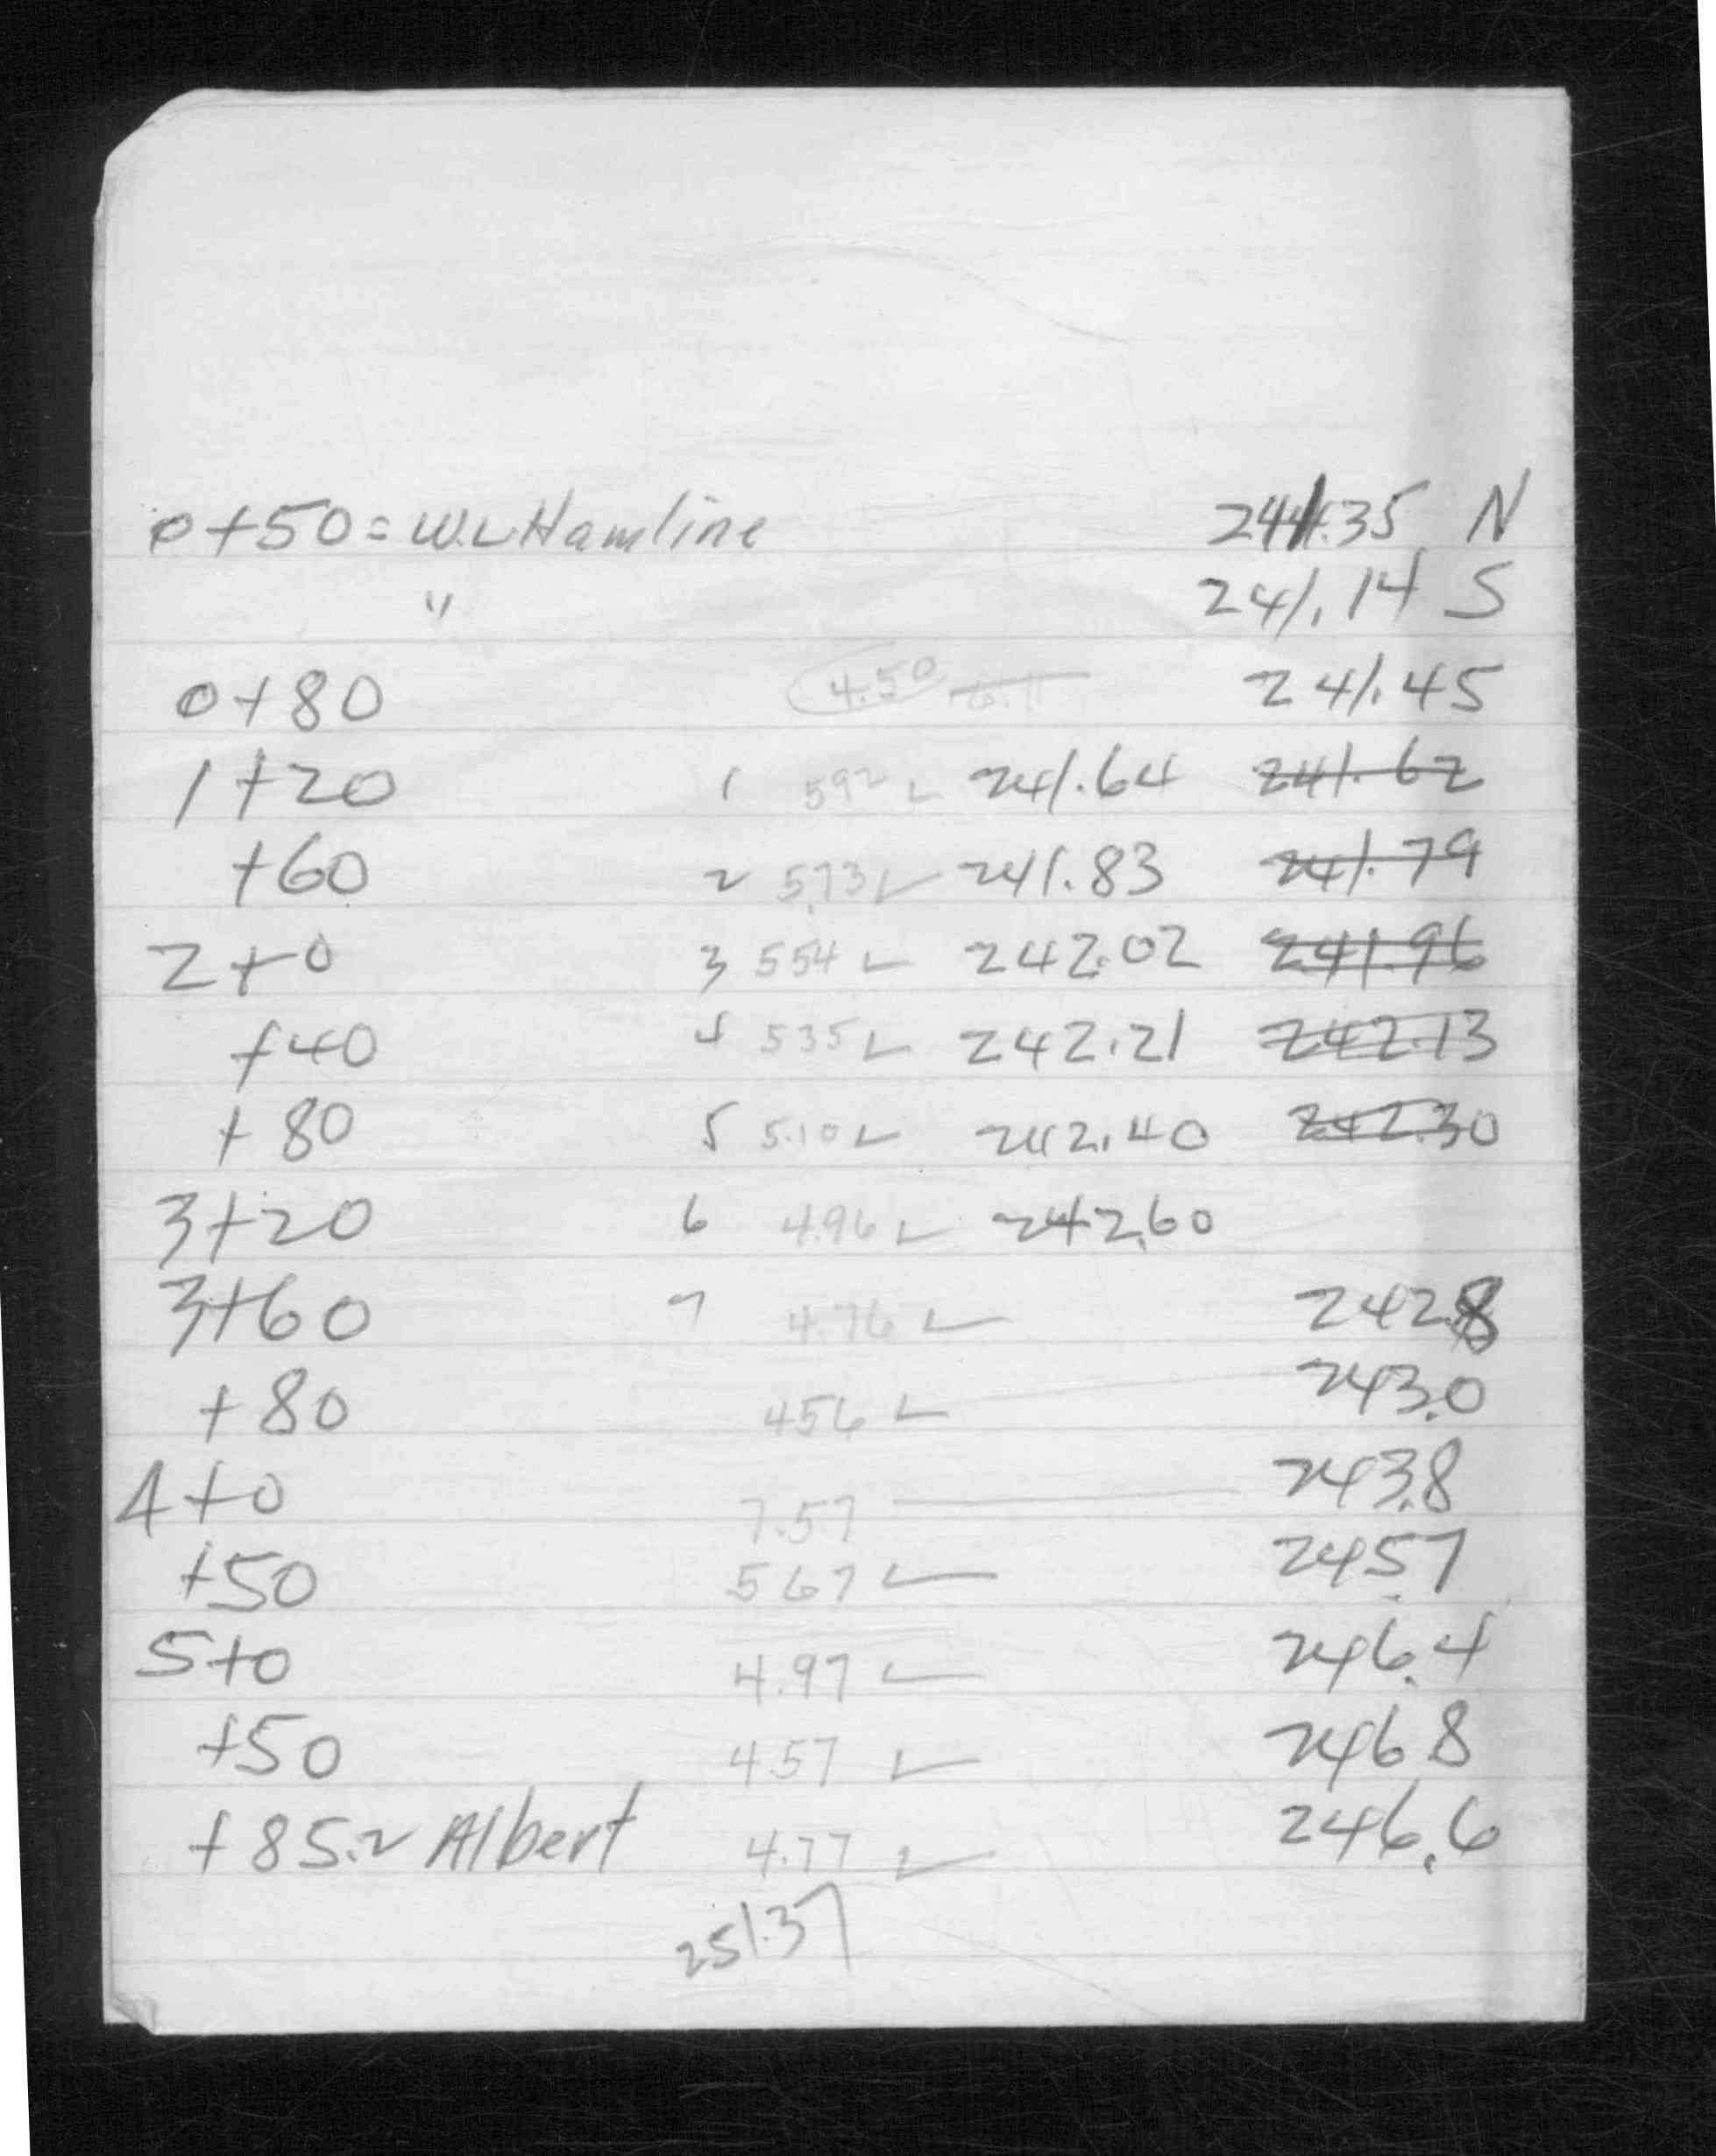 0+50 = W.L Hamline 241.35 N
" 241.14 S
0+80 4.50 6.11 241.45
1+20 1 592 241.64 241.62
+60 2 5.73 241.83 241.79
2+0 3 554 242.02 241.96
+40 4 535 242.21 242.13
+80 5 5.10 242.40 242.30
3+20 6 4.96 242.60
3+60 7 4.76 242.8
+80 456 243.0
4+0 7.57 243.8
+50 567 245.7
5+0 4.97 246.4
+50 4.57 246.8
+85.2 Albert 4.77 246.6
251.37